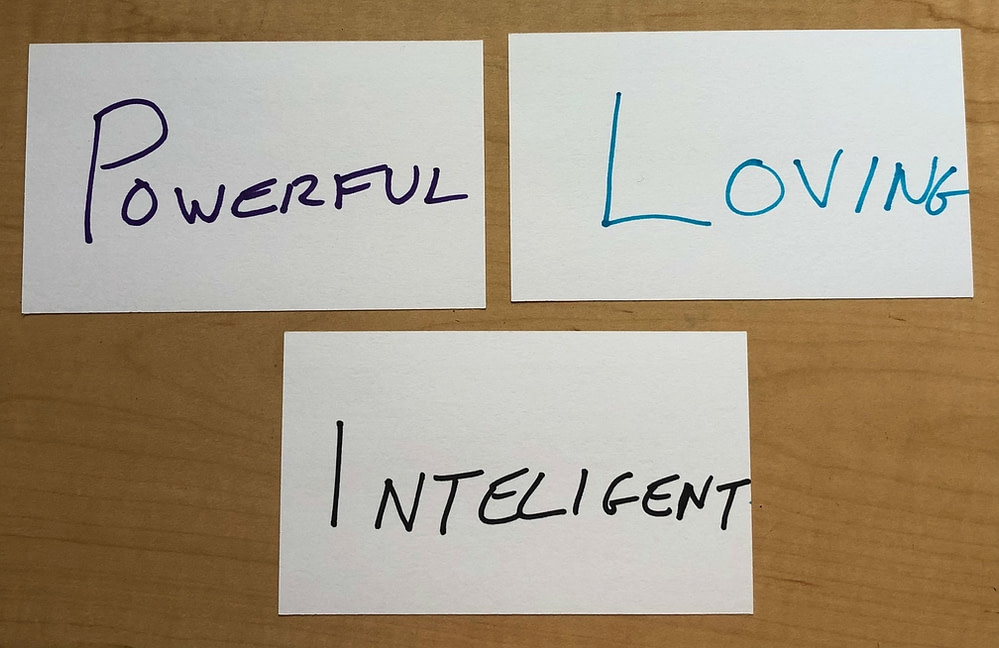 Powerful
Loving
Inteligent